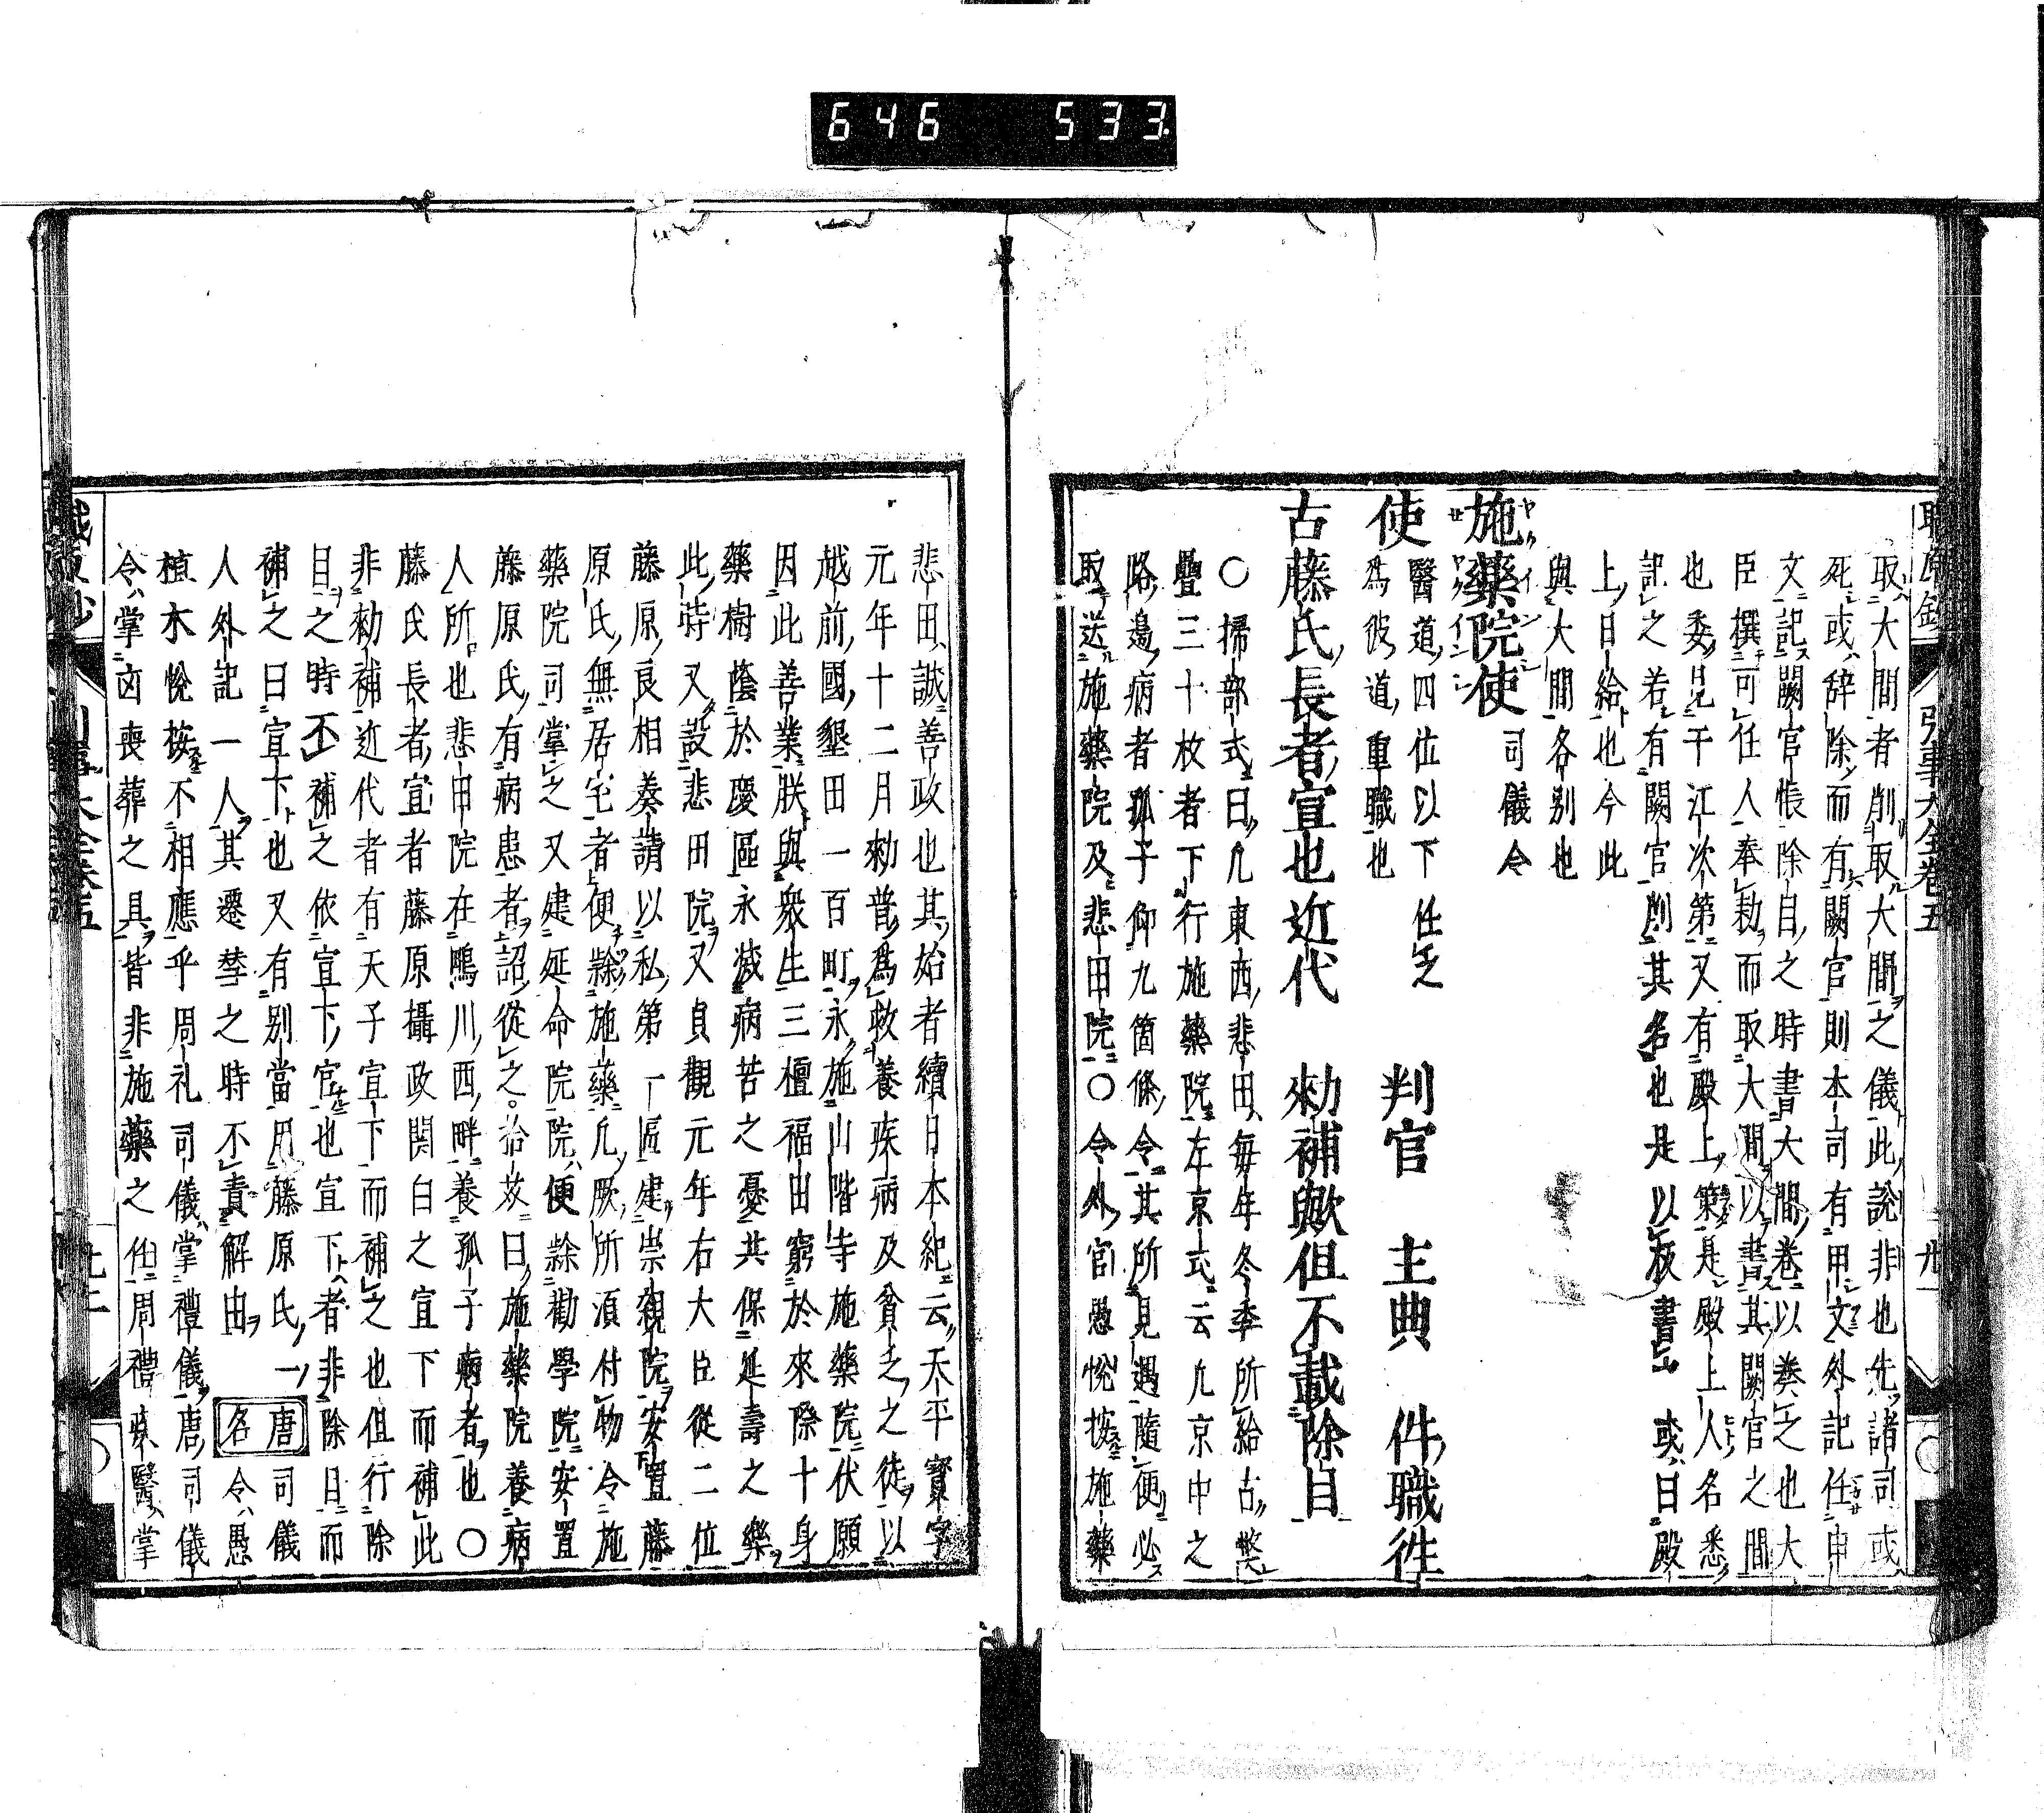 646 533
職原鈔 引事大全卷五 卅一
取大間者削取大間之儀此説非也先諸司或
死或辞除而有闕官則本司有申文外記任申
文記闕官帳除目之時書大間卷以奏之也大
臣撰可任人奉勅而取大間以書其闕官之間
也委見于江次第又有殿上簡是殿上人名悉
記之若有闕官削其名也是以板書 或曰殿
上日給也今此
與大間各別也
施藥院使 司儀令
使 醫道四位以下任之
爲彼道重職也
判官 主典 件職徃
古藤氏長者宣也近代 勅補歟但不載除目
〇掃部式曰凡東西悲田毎年冬季所給古弊
疊三十枚者下行施藥院左京式云凡京中之
路邊病者孤子仰九箇條令其所見遇隨便必
取送施藥院及悲田院〇令外官愚按施藥
悲田誠善政也其始者續日本紀云天平寶字
元年十二月勅普爲救養疾病及貧乏之徒以
越前國墾田一百町永施山階寺施藥院伏願
因此善業朕與衆生三檀福田窮於來際十身
藥樹蔭於塵區永滅病苦之憂共保延壽之樂
此時又設悲田院又貞觀元年右大臣從二位
藤原良相奏請以私第一區建崇親院安置藤
原氏無居宅者便隷施藥凡厥所須付物令施
藥院司掌之又建延命院院便隷勸學院安置
藤原氏有病患者詔從之拾芥曰施藥院養病
人所也悲田院在鴨川西畔養孤子病者也〇
藤氏長者宣者藤原攝政関白之宣下而補此
非勅補近代者有天子宣下而補之也但行除
目之時不補之依宣下官也宣下者非除目而
補之曰宣下也又有別當用藤原氏一
人外記一人其遷替之時不責解由 唐名 司儀令愚
植木悦按不相應乎周礼司儀掌禮儀唐司儀
令掌凶喪葬之具皆非施藥之任周禮疾醫掌